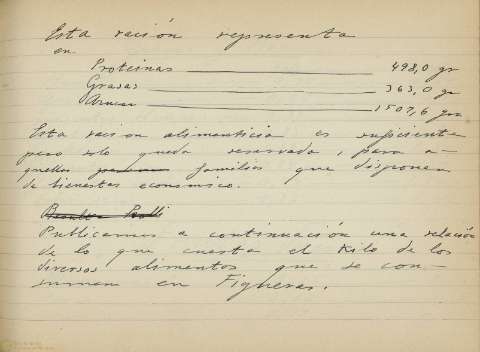 Esta ración representa
en
Proteinas 498,0 gr
Grasas 363,0 gr
Azucar 1507,6 grs
Esta racion alimenticia es suficiente
pero solo queda reservada, para a-
quellas familias que disponen
de bienestar economico.
Publicamos a continuación una relación
de lo que cuesta el Kilo de los
diversos alimentos que se con-
suman en Figueras.